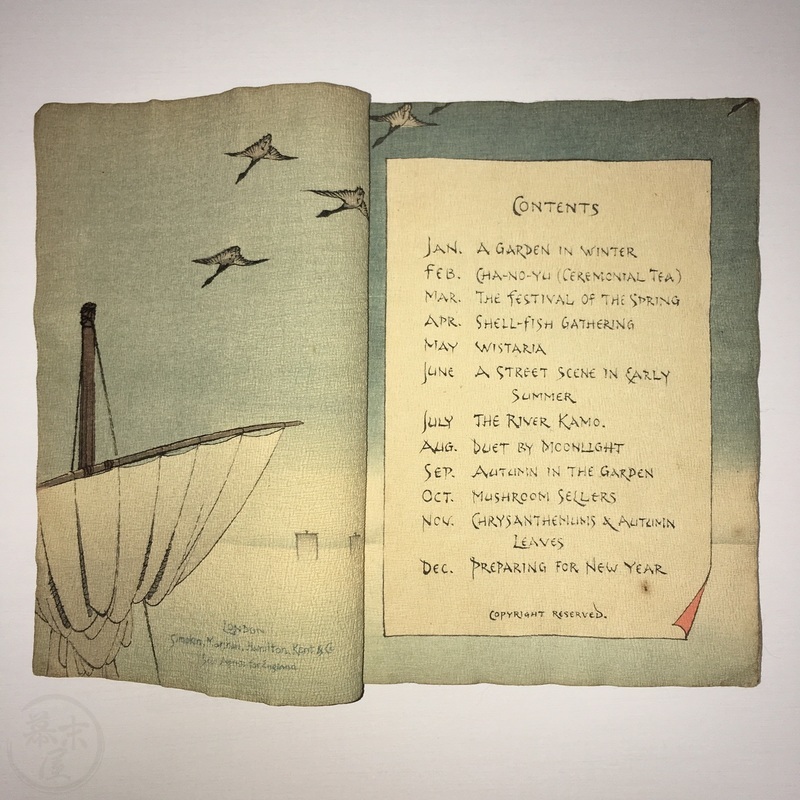 London
Simpkin, Marshall, Hamilton, Kent & Co
Sole Agents for England
Contents
Jan. A Garden in Winter
Feb. Cha-no-yu (Ceremonial Tea)
Mar. The Festival of the Spring
Apr. Shell-fish Gathering
May Wistaria
June A Street Scene in Early
Summer
July The River Kamo.
Aug. Duet by Moonlight
Sep. Autumn in the Garden
Oct. Mushroom Sellers
Nov. Chrysanthemums & Autumn
Leaves
Dec. Preparing for New Year
Copyright reserved.
幕末屋